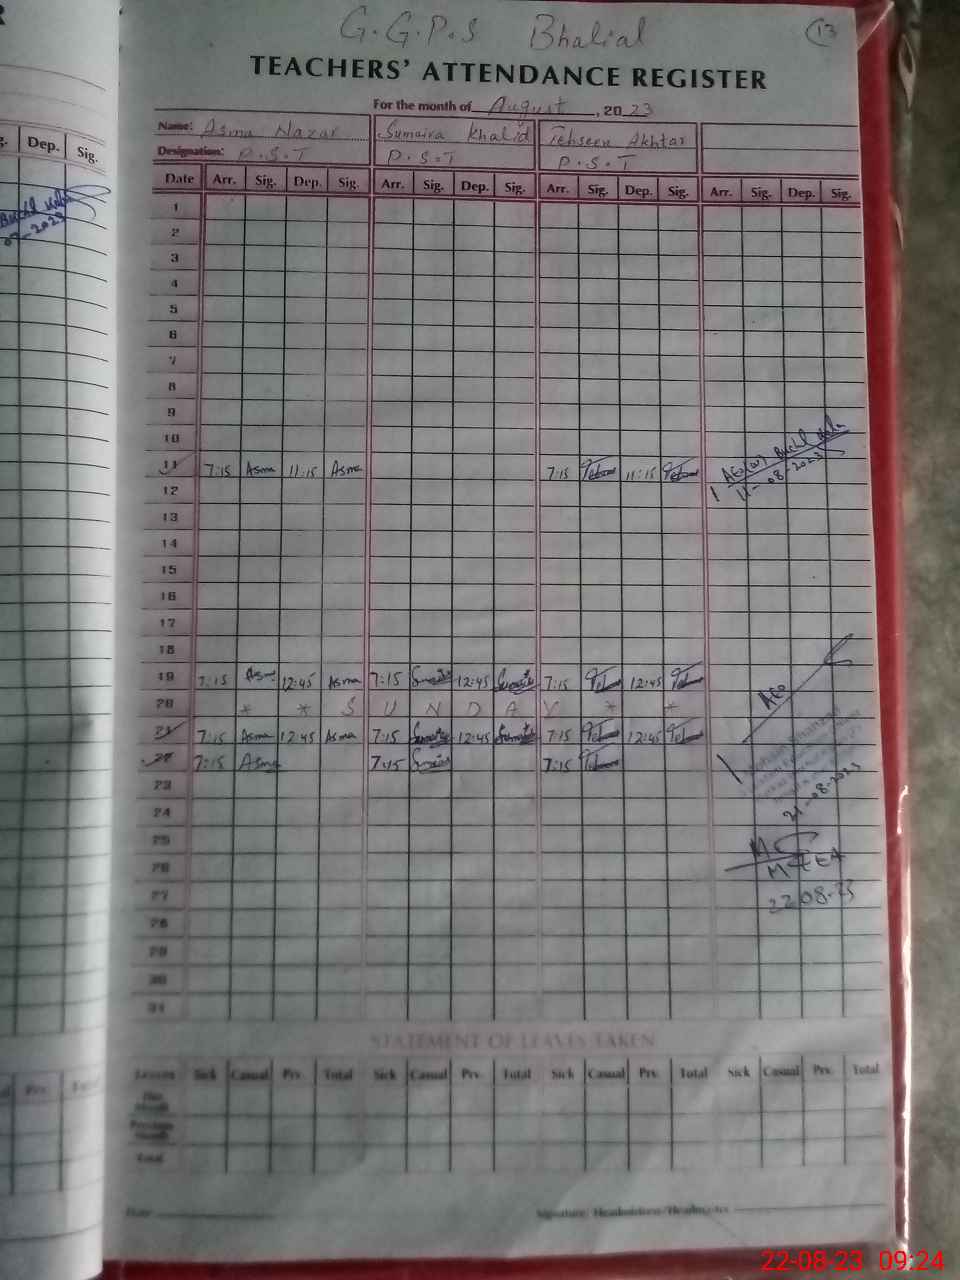 G.G.P.S Bhalial
13
TEACHERS' ATTENDANCE REGISTER
For the month of August, 2023
Name: Asma Nazar Sumaira Khalid Tehseen Akhtar
Designation: P.S.T P.S.T P.S.T
Date Arr. Sig. Dep. Sig. Arr. Sig. Dep. Sig. Arr. Sig. Dep. Sig. Arr. Sig. Dep. Sig.
Dep. Sig.
1
2
3
4
5
6
7
8
9
10
11 7:15 Asma 11:15 Asma 7:15 11:15
AEO(W)
11-08-2023
12
13
14
15
16
17
18
19 7:15 Asma 12:45 Asma 7:15 12:45 7:15 12:45
AEO
20 * * S U N D A Y * *
21 7:15 Asma 12:45 Asma 7:15 12:45 7:15 12:45
22 7:15 Asma 7:15 7:15
23
21-08-2023
24
25
26
MEA
27
22 08-23
28
29
30
31
STATEMENT OF LEAVES TAKEN
Leaves Sick Casual Prv. Total Sick Casual Prv. Total Sick Casual Prv. Total Sick Casual Prv. Total
This Month
Previous Month
Total
Date
Signature: Headmistress/Headmaster
22-08-23 09:24